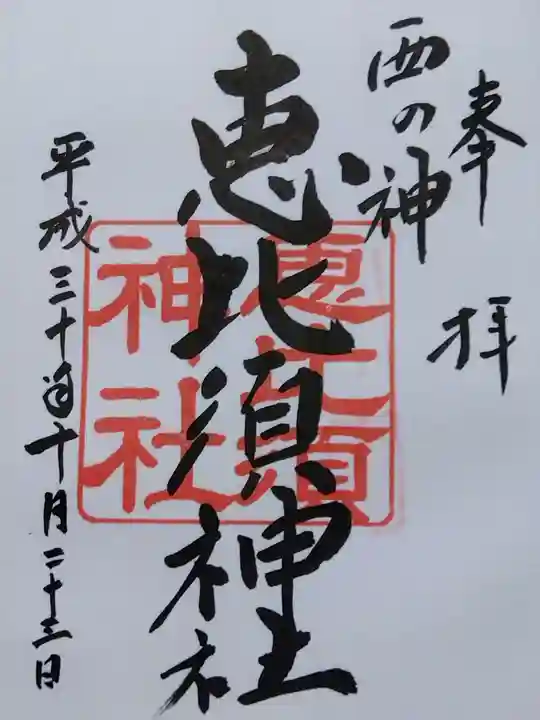 奉拝
西の神
恵比須神社
恵比須神社
平成三十年十月二十三日